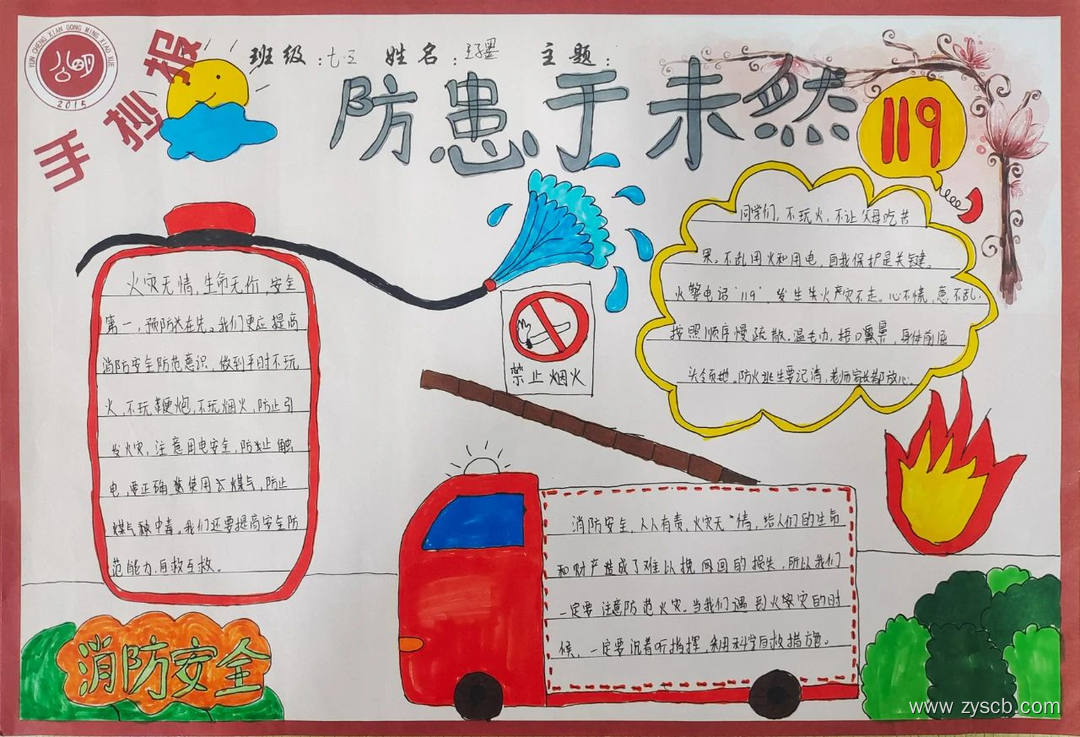 YUN CHENG XIAN GONG MING XIAO XUE
公明
2015
手抄报
班级：七三 姓名： 主题：
防患于未然
119
火灾无情，生命无价，安全
第一，预防在先。我们更应提高
消防安全防范意识，做到平时不玩
火，不玩鞭炮，不玩烟火，防止引
发火灾，注意用电安全，防止触
电，要正确使用煤气，防止
煤气中毒。我们还要提高安全防
范能力，自救互救。
禁止烟火
同学们，不玩火，不让父母吃苦
果。不乱用火和用电，自我保护是关键。
火警电话"119"，发生火灾不走，心不慌，意不乱，
按照顺序慢疏散，湿毛巾，捂口鼻，身体前屈
头领地，防火逃生要记清，老师家长都放心。
消防安全，人人有责，火灾无情，给人们的生命
和财产造成了难以挽回的损失，所以我们
一定要注意防范火灾。当我们遇到火灾的时
候，一定要沉着听指挥，利用科学自救措施。
消防安全
www.zyscb.com